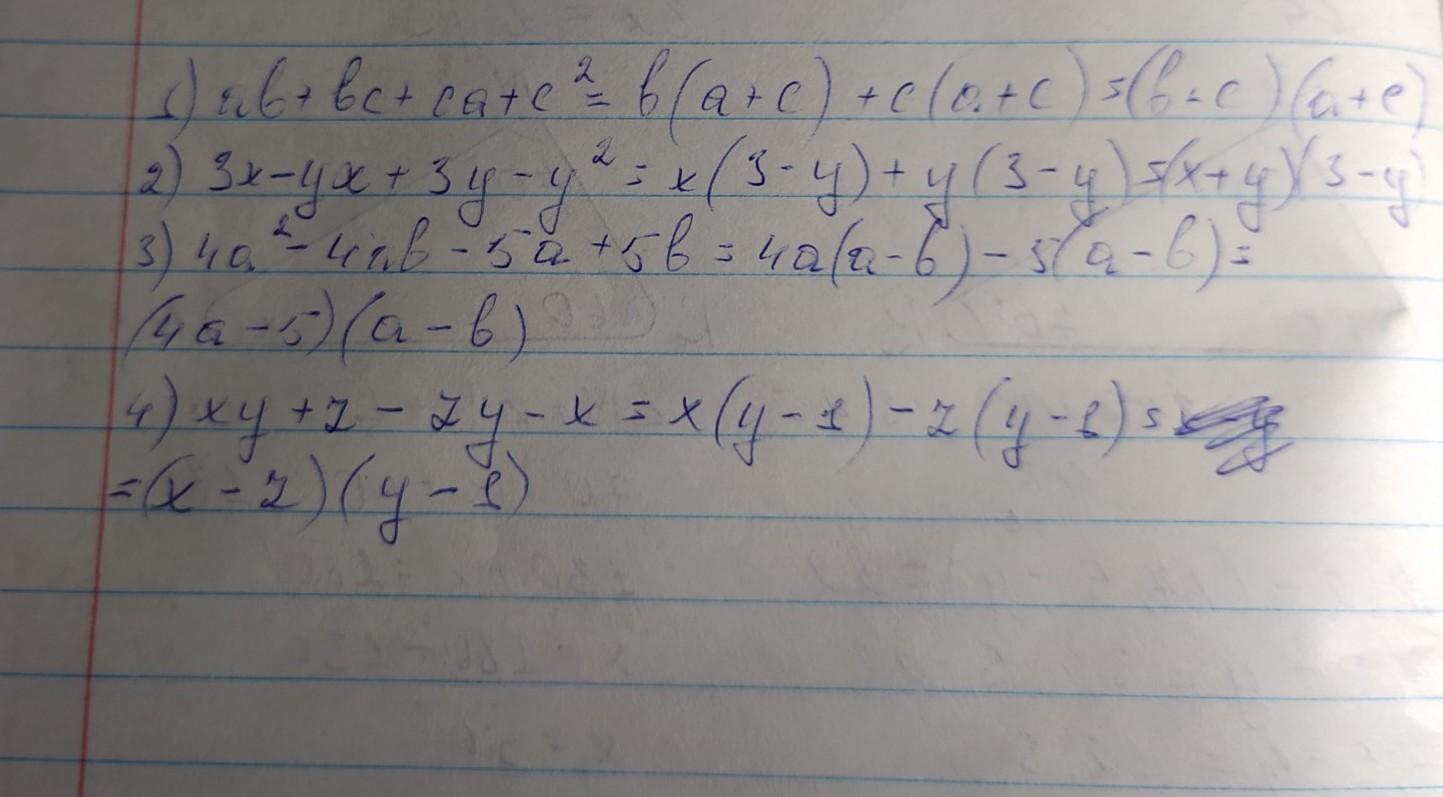 1) ab + bc + ca + c² = b(a + c) + c(a + c) = (b + c)(a + c)
2) 3x - yx + 3y - y² = x(3 - y) + y(3 - y) = (x + y)(3 - y)
3) 4a² - 4ab - 5a + 5b = 4a(a - b) - 5(a - b) =
(4a - 5)(a - b)
4) xy + z - zy - x = x(y - 1) - z(y - 1) =
= (x - z)(y - 1)